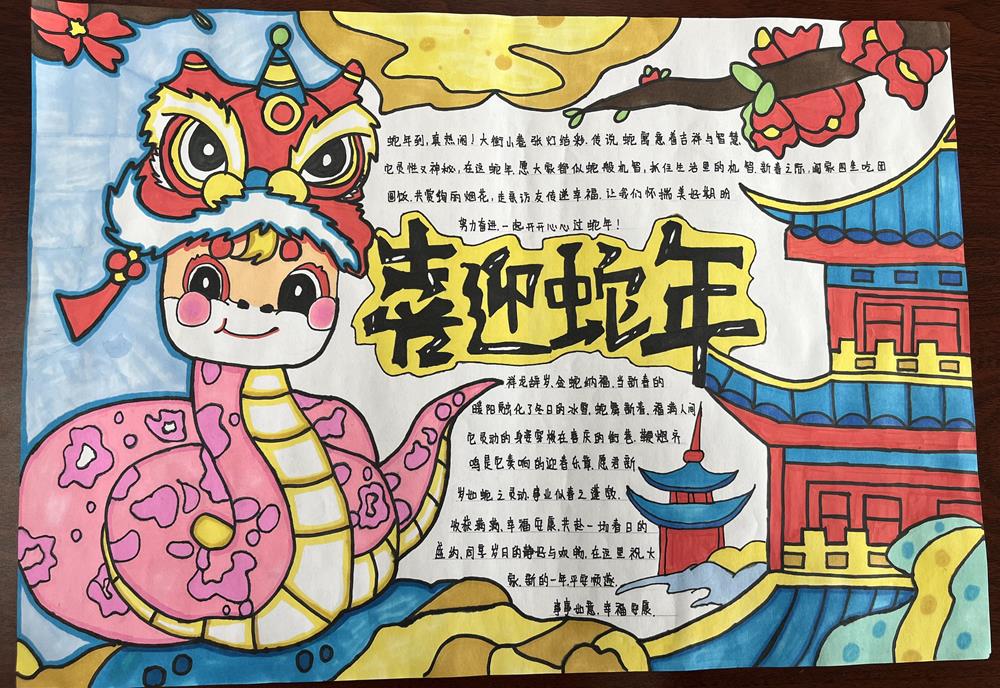 蛇年到,真热闹!大街小巷张灯结彩.传说,蛇寓意着吉祥与智慧,
它灵性又神秘,在这蛇年,愿大家皆似蛇般机智,抓住生活里的机智.新春之际,阖家围坐吃团
圆饭,共赏绚丽烟花,走亲访友传递幸福.让我们怀揣美好期盼
努力奋进.一起开开心心过蛇年!
喜迎蛇年
祥龙辞岁,金蛇纳福.当新春的
暖阳融化了冬日的冰雪,蛇舞新春,福满人间
它灵动的身姿穿梭在喜庆的街巷,鞭炮齐
鸣是它奏响的迎春乐章.愿君新
岁如蛇之灵动,事业似春之蓬勃,
收获满满,幸福安康,共赴一场春日的
盛约,同享岁月的静好与欢畅.在这里祝大
家,新的一年,平安顺遂,
事事如意,幸福安康.